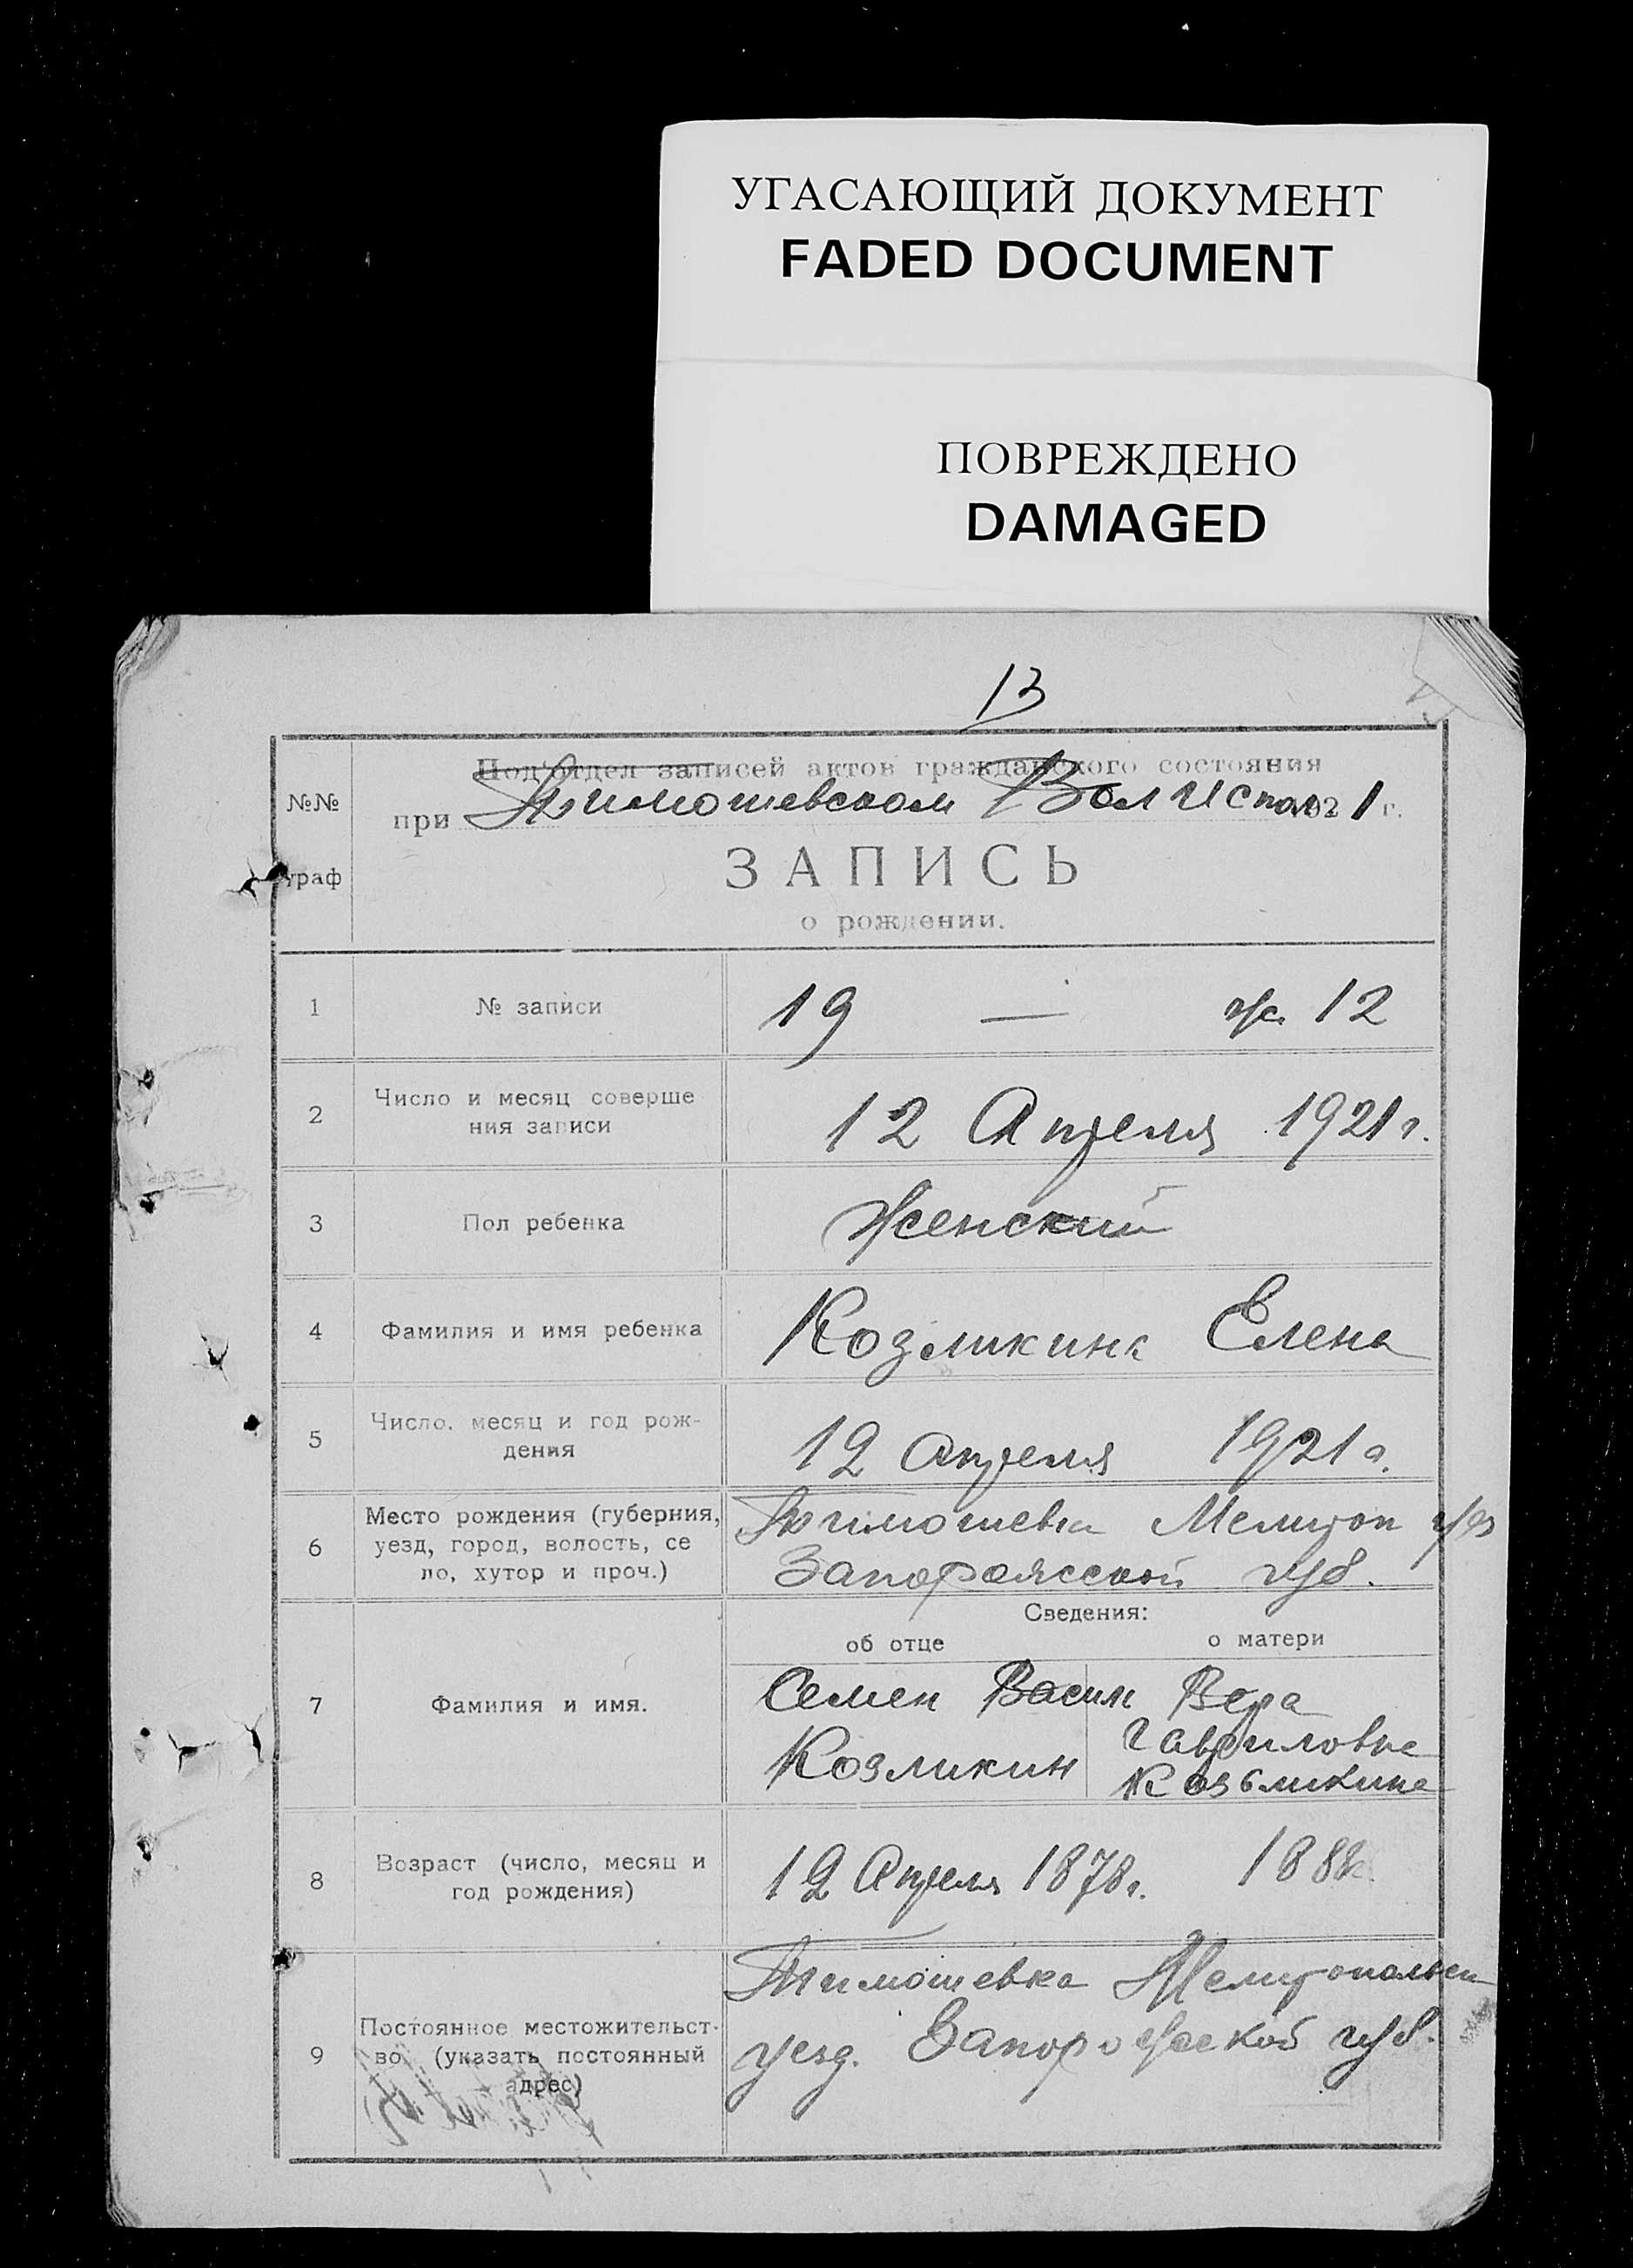 УГАСАЮЩИЙ ДОКУМЕНТ
FADED DOCUMENT
ПОВРЕЖДЕНО
DAMAGED
13
№№
граф
Под'отдел записей актов гражданского состояния
при Тимошевском Вол Испол 1921 г.
ЗАПИСЬ
о рождении.
1 № записи 19 — ж. 12
2 Число и месяц соверше
ния записи 12 Апреля 1921 г.
3 Пол ребенка Женский
4 Фамилия и имя ребенка Козликина Елена
5 Число, месяц и год рож-
дения 12 Апреля 1921 г.
6 Место рождения (губерния,
уезд, город, волость, се
ло, хутор и проч.) Тимошевка Мелитоп уез
Запорожской губ.
Сведения:
об отце о матери
7 Фамилия и имя.
Семен Васил
Козликин
Вера
Гавриловна
Козьликина
8 Возраст (число, месяц и
год рождения) 12 Апреля 1878 г. 188
9 Постоянное местожительст-
во (указать постоянный
адрес)
Тимошевка Мелитопольск
уезд. Запорожской губ.